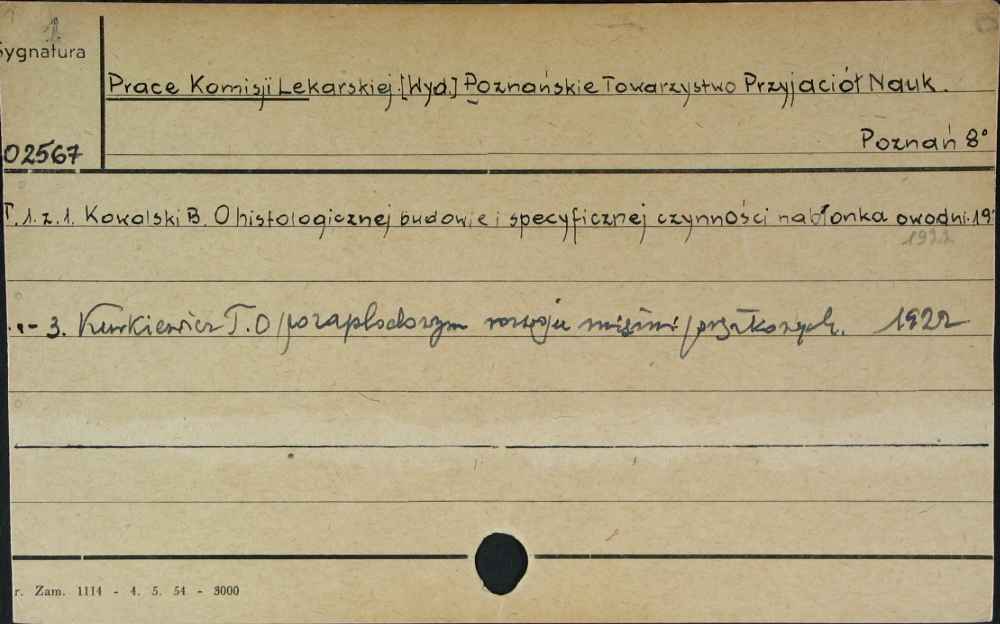 1.
Sygnatura
Prace Komisji Lekarskiej. [Wyd.] Poznańskie Towarzystwo Przyjaciół Nauk.
Poznań 8°
02567
T. 1. z. 1. Kowalski B. O histologicznej budowie i specyficznej czynności nabłonka owodni. 19
1922
3. Kurkiewicz T. O pozapłodowym rozwoju mięśni 1922
r. Zam. 1114 - 4. 5. 54 - 3000